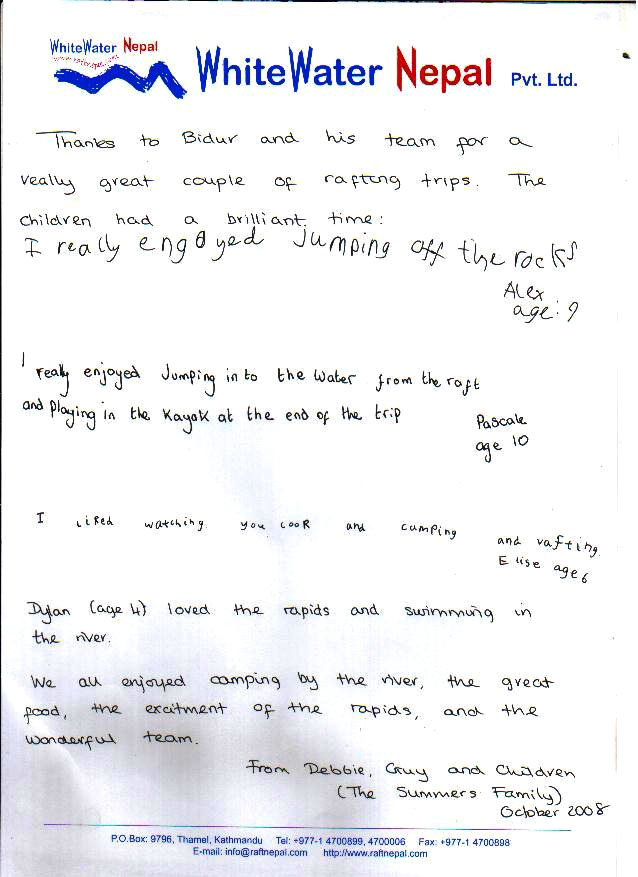 WhiteWater Nepal
www.raftnepal.com
WhiteWater Nepal Pvt. Ltd.
Thanks to Bidur and his team for a
really great couple of rafting trips. The
children had a brilliant time:
I really engoyed Jumping off the rocks
Alex
age: 9
I really enjoyed Jumping in to the water from the raft
and Playing in the Kayak at the end of the trip
Pascale
age 10
I liked watching you cook and camping and rafting
Elise age 6
Dylan (age 4) loved the rapids and swimming in
the river.
We all enjoyed camping by the river, the great
food, the excitment of the rapids, and the
wonderful team.
From Debbie, Guy and Children
(The Summers Family)
October 2008
P.O.Box: 9796, Thamel, Kathmandu Tel: +977-1 4700899, 4700006 Fax: +977-1 4700898
E-mail: info@raftnepal.com http://www.raftnepal.com